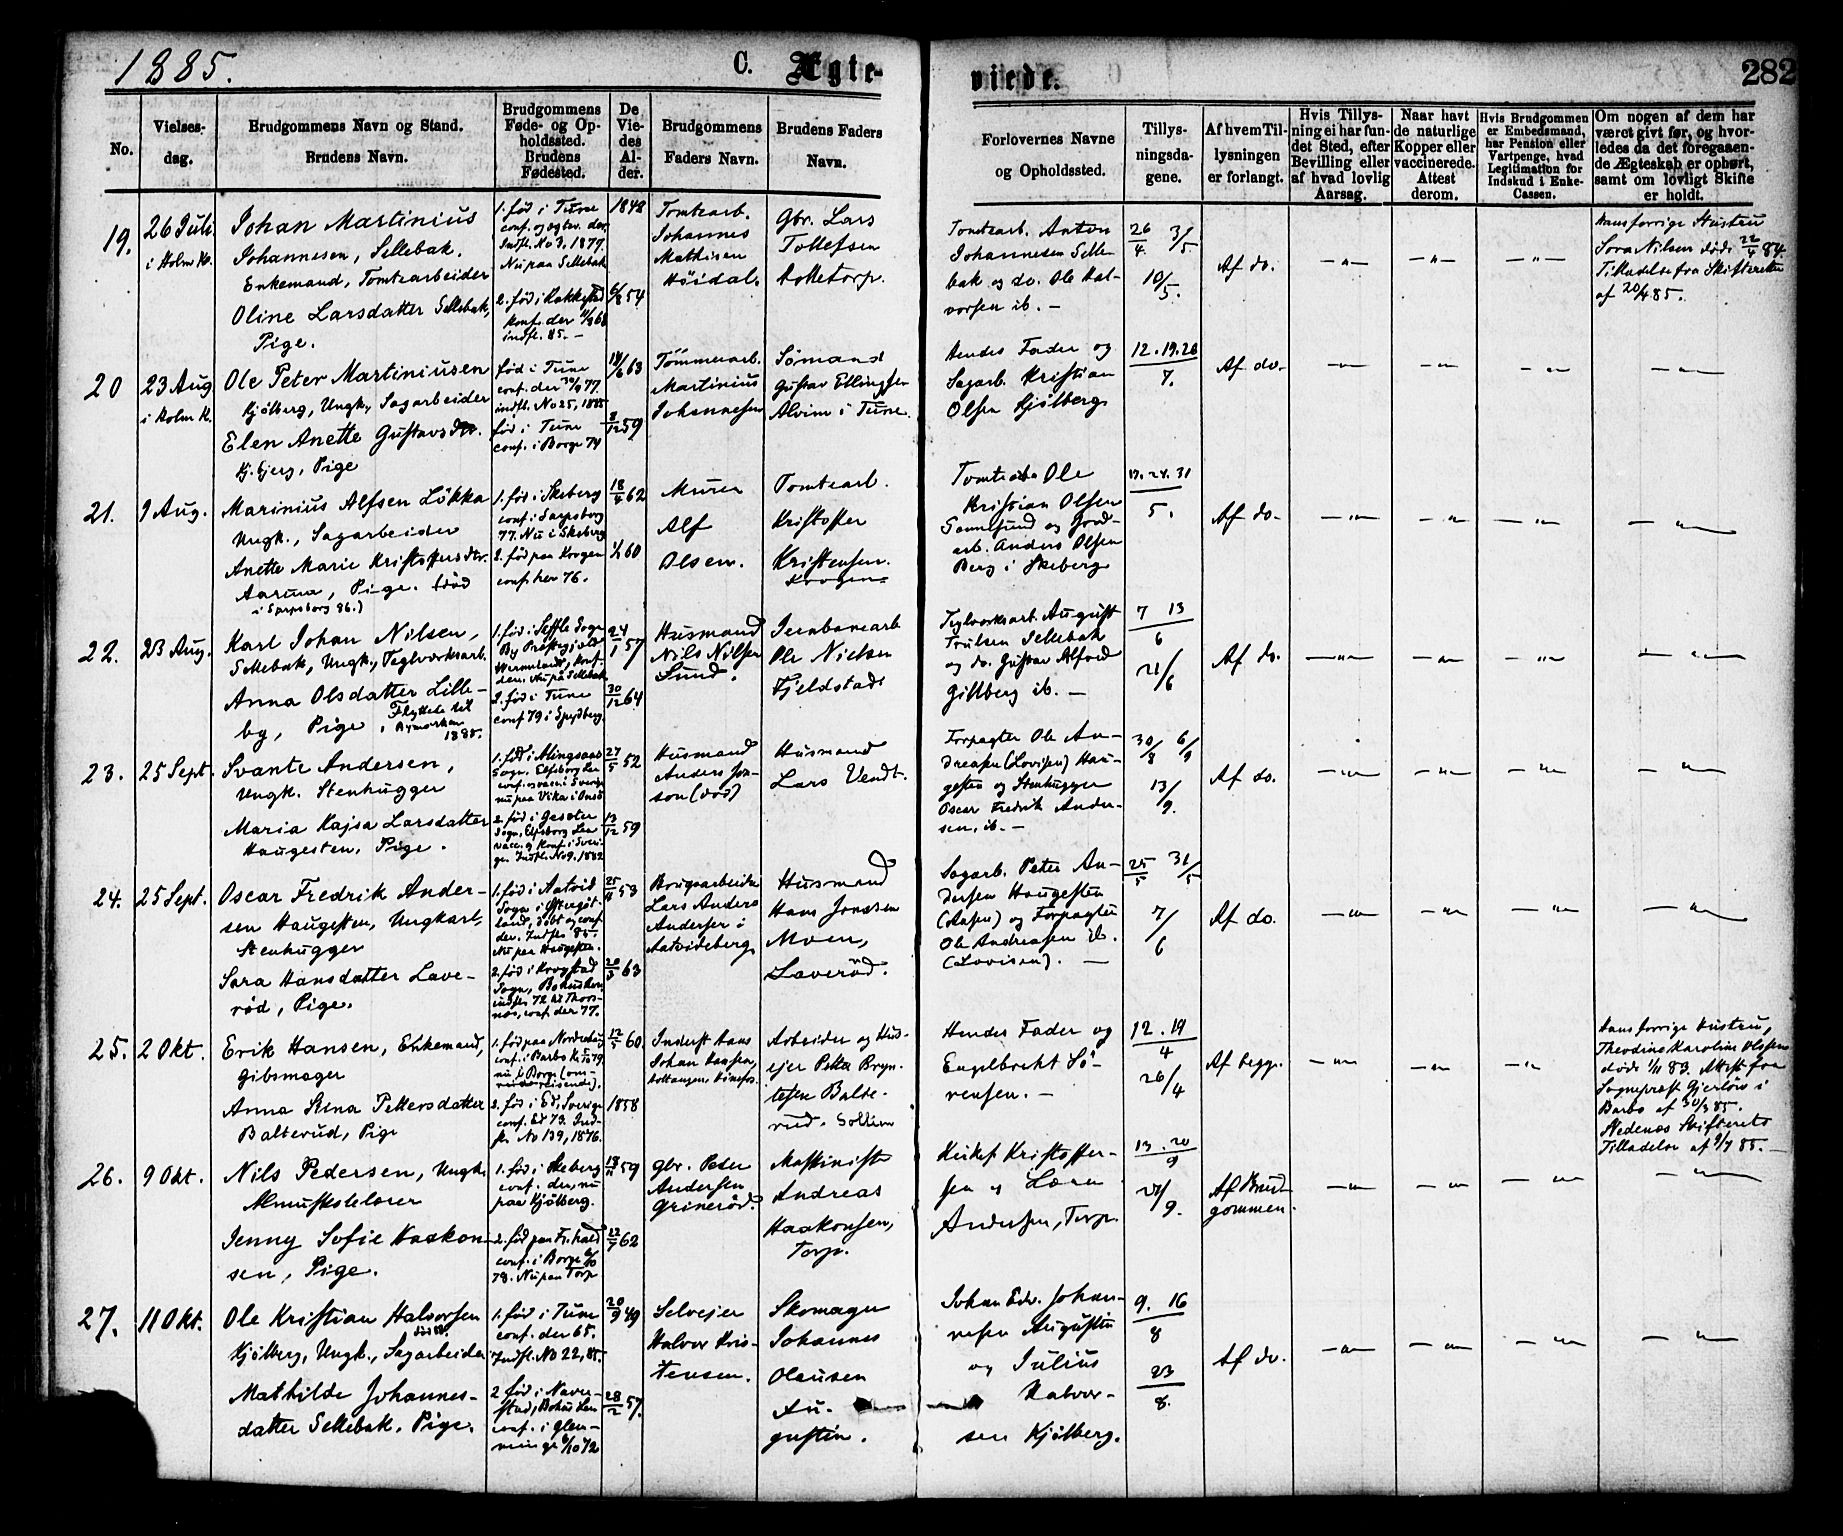 1885.
C. Ægte-
viede.
282
No.
Vielses-
dag.
Brudgommens Navn og Stand.
Brudens Navn.
Brudgommens
Føde- og Op-
holdssted.
Brudens
Fødested.
De
Vie-
des
Al-
der.
Brudgommens
Faders Navn.
Brudens Faders
Navn.
Forlovernes Navne
og Opholdssted.
Tillys-
ningsda-
gene.
Af hvem Til-
lysningen
er forlangt.
Hvis Tillys-
ning ei har fun-
det Sted, efter
Bevilling eller
af hvad lovlig
Aarsag.
Naar havt
de naturlige
Kopper eller
vaccinerede.
Attest
derom.
Hvis Brudgommen
er Embedsmand,
har Pension eller
Vartpenge, hvad
Legitimation for
Indskud i Enke-
Cassen.
Om nogen af dem har
været givt før, og hvor-
ledes da det foregaaen-
de Ægteskab er ophørt,
samt om lovligt Skifte
er holdt.
19.
26 Juli
i Holm K.
Johan Martinius
Johannesen, Sellebak,
Enkemand, Tomtearbeider
Oline Larsdatter Sellebak,
Pige.
1. fød i Tune
Indfl. No 3, 1877.
Nu paa Sellebak
2. fød i Rakkestad
konf. der
indfl. 85. –
1848
6/8 54
Tomtearb.
Johannes
Mathisen
Høidal.
Gbr. Lars
Tollefsen
Tomtearb. Anton
Johannesen Selle-
bak og do. Ole Hal-
vorsen ib. –
26/4 3/5
10/5.
Af do.
– " –
– " –
– " –
Hans forrige Hustru
døde 22/4 84.
Tilladelse fra Skifteretten
af 20/4 85.
20
23 Aug
i Holm K.
Ole Peter Martiniusen
Kjølberg, Ungk., Sagarbeider
Elen Anette Gustavsdtr.
Kj.bjerg, Pige
født i Tune
conf. der 30/9 77.
indfl. No 25, 1885
fød i Tune
conf. i Borge 74
63
8/12 59
Tømmerarb.
Martinius
Johannesen
Sømand
Gustav Ellingsen
Alvim i Tune.
Hendes Fader og
Sagarb. Kristian
Olsen Kjølberg
12. 19. 26
7.
Af do.
– " –
– " –
– " –
– " –
21.
9 Aug.
Marinius Alfsen Løkka
Ungk., Sagarbeider
Anette Marie Kristoffersdtr.
Aarum, Pige. (død
i Sarpsborg 86.)
1. fød i Skeberg
conf. i Sarpsborg
77. Nu i Skeberg
2. fød paa Krogen
conf. her 76.
18/4 62
60
Murer
Alf
Olsen.
Tomtearb.
Kristoffer
Kristensen.
Krogen
Tomtearb. Ole
Kristian Olsen
Sannesund og Jord-
arb. Anders Olsen
Berg i Skeberg
17. 24. 31
5.
Af do.
– " –
– " –
– " –
– " –
22.
23 Aug.
Karl Johan Nilsen,
Sellebak, Ungk., Teglværksarb.
Anna Olsdatter Lille-
by, Pige. Flyttede til
1885.
1. fød i Seffle Sogn
By Præstegjeld
Wermland, konf.
der. Nu på Sellebak
2. fød i Tune
conf. 79 i Spydberg.
24/1 57
30/12 64
Husmand
Nils Nilsen
Lund.
Jernbanearb
Ole Nielsen
Fjeldstad
Teglværksarb. August
Trulsen Sellebak
og do. Gustav Alfred
Gillberg ib. –
7 13
6
21/6
Af do.
– " –
– " –
– " –
– " –
23.
25 Sept.
Svante Andersen,
Ungk. Stenhugger
Maria Kajsa Larsdatter
Haugesten, Pige.
1. fød i Alingsaas
Sogn. Elfsborg Len
conf. og vacc. i Sverige
nu paa Vika i Onsø
2. fød i
Sogn, Elfsborg Len
vacc. og konf. i Sveri-
ge. Indfl. No 9. 1882
27/5 52
13/12 59
Husmand
Anders Jon-
son (død)
Husmand
Lars Vendt.
Forpagter Ole An-
dreasen (Lovisen) Hau-
gesten og Stenhugger
Oscar Fredrik Ander-
sen, ib. –
30/8 6/9
13/9.
Af do.
– " –
– " –
– " –
– " –
24.
25 Sept.
Oscar Fredrik Ander-
sen Haugesten, Ungkarl,
Stenhugger
Sara Hansdatter Lave-
rød, Pige.
1. fød i Aatvid
Sogn i Østergöt-
land, døbt og conf.
der. Indfl. 85.
Nu paa Haugesten.
2. fød i Krogstad
Sogn, Bohuslen
indfl. 72 til Thors-
næs, conf. der 77.
53
20/3 63
Brugsarbeider
Lars Anders
Andersen i
Aatvideberg
Husmand
Hans Jonasen
Moen,
Laverød.
Sagarb. Peter An-
dersen Haugesten
(Aasen) og Forpagter
Ole Andreasen ib.
(Lovisen). –
25/5 31/5
7/6
Af do.
– " –
– " –
– " –
– " –
25.
2 Okt.
Erik Hansen, Enkemand,
Gibsmager
Anna Stina Pettersdatter
Balterud, Pige
1. fød paa Nordre
conf. i Barbo
nu i Borge (om-
reisende).
2. fød i Ed, Sverige
conf. Ed 73. Ind-
fl. No 139, 1876.
12/5 60
1858
Inderst Hans
Johan Hansen,
Arbeider og Hus-
ejer Petter Bryn-
tesen Balte-
rud. Sollien
Hendes Fader og
Engelbrekt Sö-
rensen. –
12. 19
4
26/4
Af begge.
– " –
– " –
– " –
Hans forrige Hustru,
Theodine Karoline Olsen
døde 1/11 83. Attest fra
Sognepræst Gjerløw i
Barbo af 30/3 85.
Nedenæs Skifterets
Tilladelse af 9/4 85. –
26.
9 Okt.
Nils Pedersen, Ungk.
Almueskolelærer
Jenny Sofie Haakon-
sen, Pige.
1. fød i Skeberg
conf. der, nu
paa Kjølberg.
2. fød paa Fr.hald
conf. i Borge
78. Nu paa Torp
59
22/7 62
Gbr. Peder
Andersen
Grinerød.
Maskinist
Andreas
Haakonsen,
Torp.
Kristoffer-
sen og Lærer
Andersen, Torp.
13. 20
9
27/9.
Af Brud-
gommen.
– " –
– " –
– " –
– " –
27.
11 Okt.
Ole Kristian Halvorsen
Kjølberg, Ungk., Sagarbeider
Mathilde Johannes-
datter Sellebak, Pige.
1. fød i Tune
conf. der 65.
Indfl. No 22, 85.
2 fød i Naver-
stad, Bohus Len
conf. i Glem-
minge 6/10 72
20/9 49
28/2 57.
Selvejer
Halvor Kris-
tensen.
Skomager
Johannes
Olausen
Au-
gustin.
Johan Edv. Johan-
nesen Augustin
og Julius
Halvor-
sen Kjølberg.
9. 16
8
23
8.
Af do.
– " –
– " –
– " –
– " –